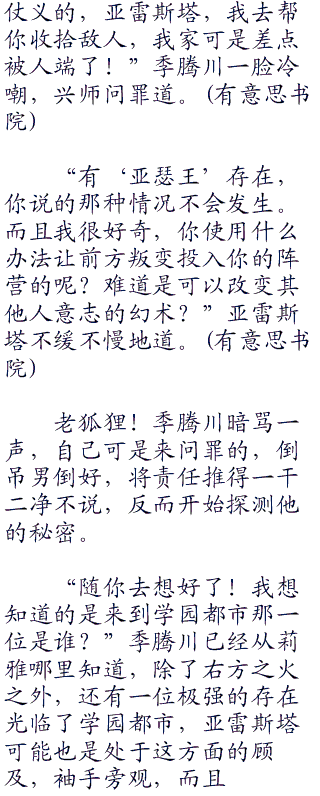 仗义的，亚雷斯塔，我去帮
你收拾敌人，我家可是差点
被人端了！”季腾川一脸冷
嘲，兴师问罪道。(有意思书
院)
“有‘亚瑟王’存在，
你说的那种情况不会发生。
而且我很好奇，你使用什么
办法让前方叛变投入你的阵
营的呢？难道是可以改变其
他人意志的幻术？”亚雷斯
塔不缓不慢地道。(有意思书
院)
老狐狸！季腾川暗骂一
声，自己可是来问罪的，倒
吊男倒好，将责任推得一干
二净不说，反而开始探测他
的秘密。
“随你去想好了！我想
知道的是来到学园都市那一
位是谁？”季腾川已经从莉
雅哪里知道，除了右方之火
之外，还有一位极强的存在
光临了学园都市，亚雷斯塔
可能也是处于这方面的顾
及，袖手旁观，而且